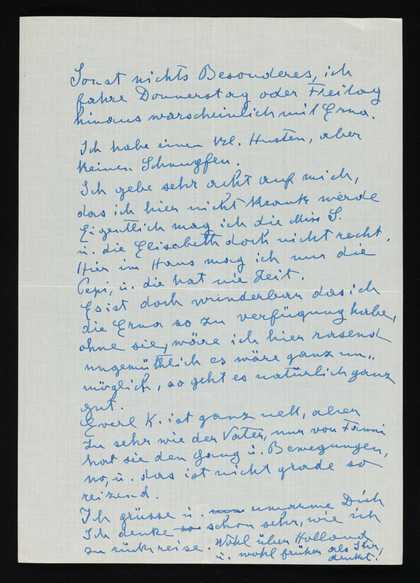 Sonst nichts Besonderes, ich
fahre Donnerstag oder Freitag
hinaus warscheinlich mit Erna.
Ich habe einen Husten, aber
keinen Schnupfen.
Ich gebe sehr acht auf mich,
das ich hier nicht krank werde
Eigentlich mag ich die Miss S.
u. die Elisabeth doch nicht recht.
Hier im Haus mag ich nur die
Pepi, u. die hat nie Zeit.
Es ist doch wunderbar das ich
die Erna so zu verfügung habe,
ohne sie, wäre ich hier rasend
ungemütlich es wäre ganz un-
möglich, so geht es natürlich ganz
gut.
K. ist ganz nett, aber
zu sehr wie der Vater, nur von
hat sie den Gang u. Bewegungen,
no, u. das ist nicht grade so
reizend.
Ich grüsse u. umarme Dich
Ich denke schon sehr, wie ich
zurück reise. Wohl über Holland
u. wohl früher als Ihr
denkt.